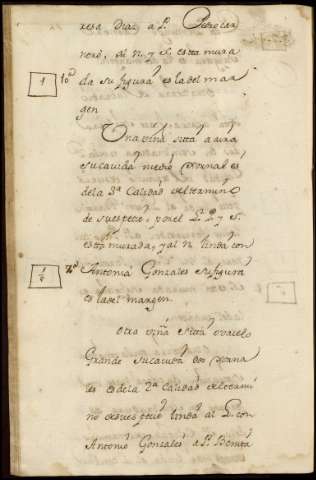 resa Diaz, a P. Pedro Car
nero, al N. y S. esta mura
1 10^a da su figura es la del mar
gen
Una viña sitta a aira
su cavida medio jornal es
de la 3ª Calidad del termino
de su especie, por el L. P. y S.
esta murada, y al N. linda con
1/2 Antonia Gonzales su figura
es la del margen.
Otra viña sitta
Grande su cavida dos jorna
les es de la 2ª calidad del termi
no de su especie linda al L. con
Antonio Gonzales a P. Benita